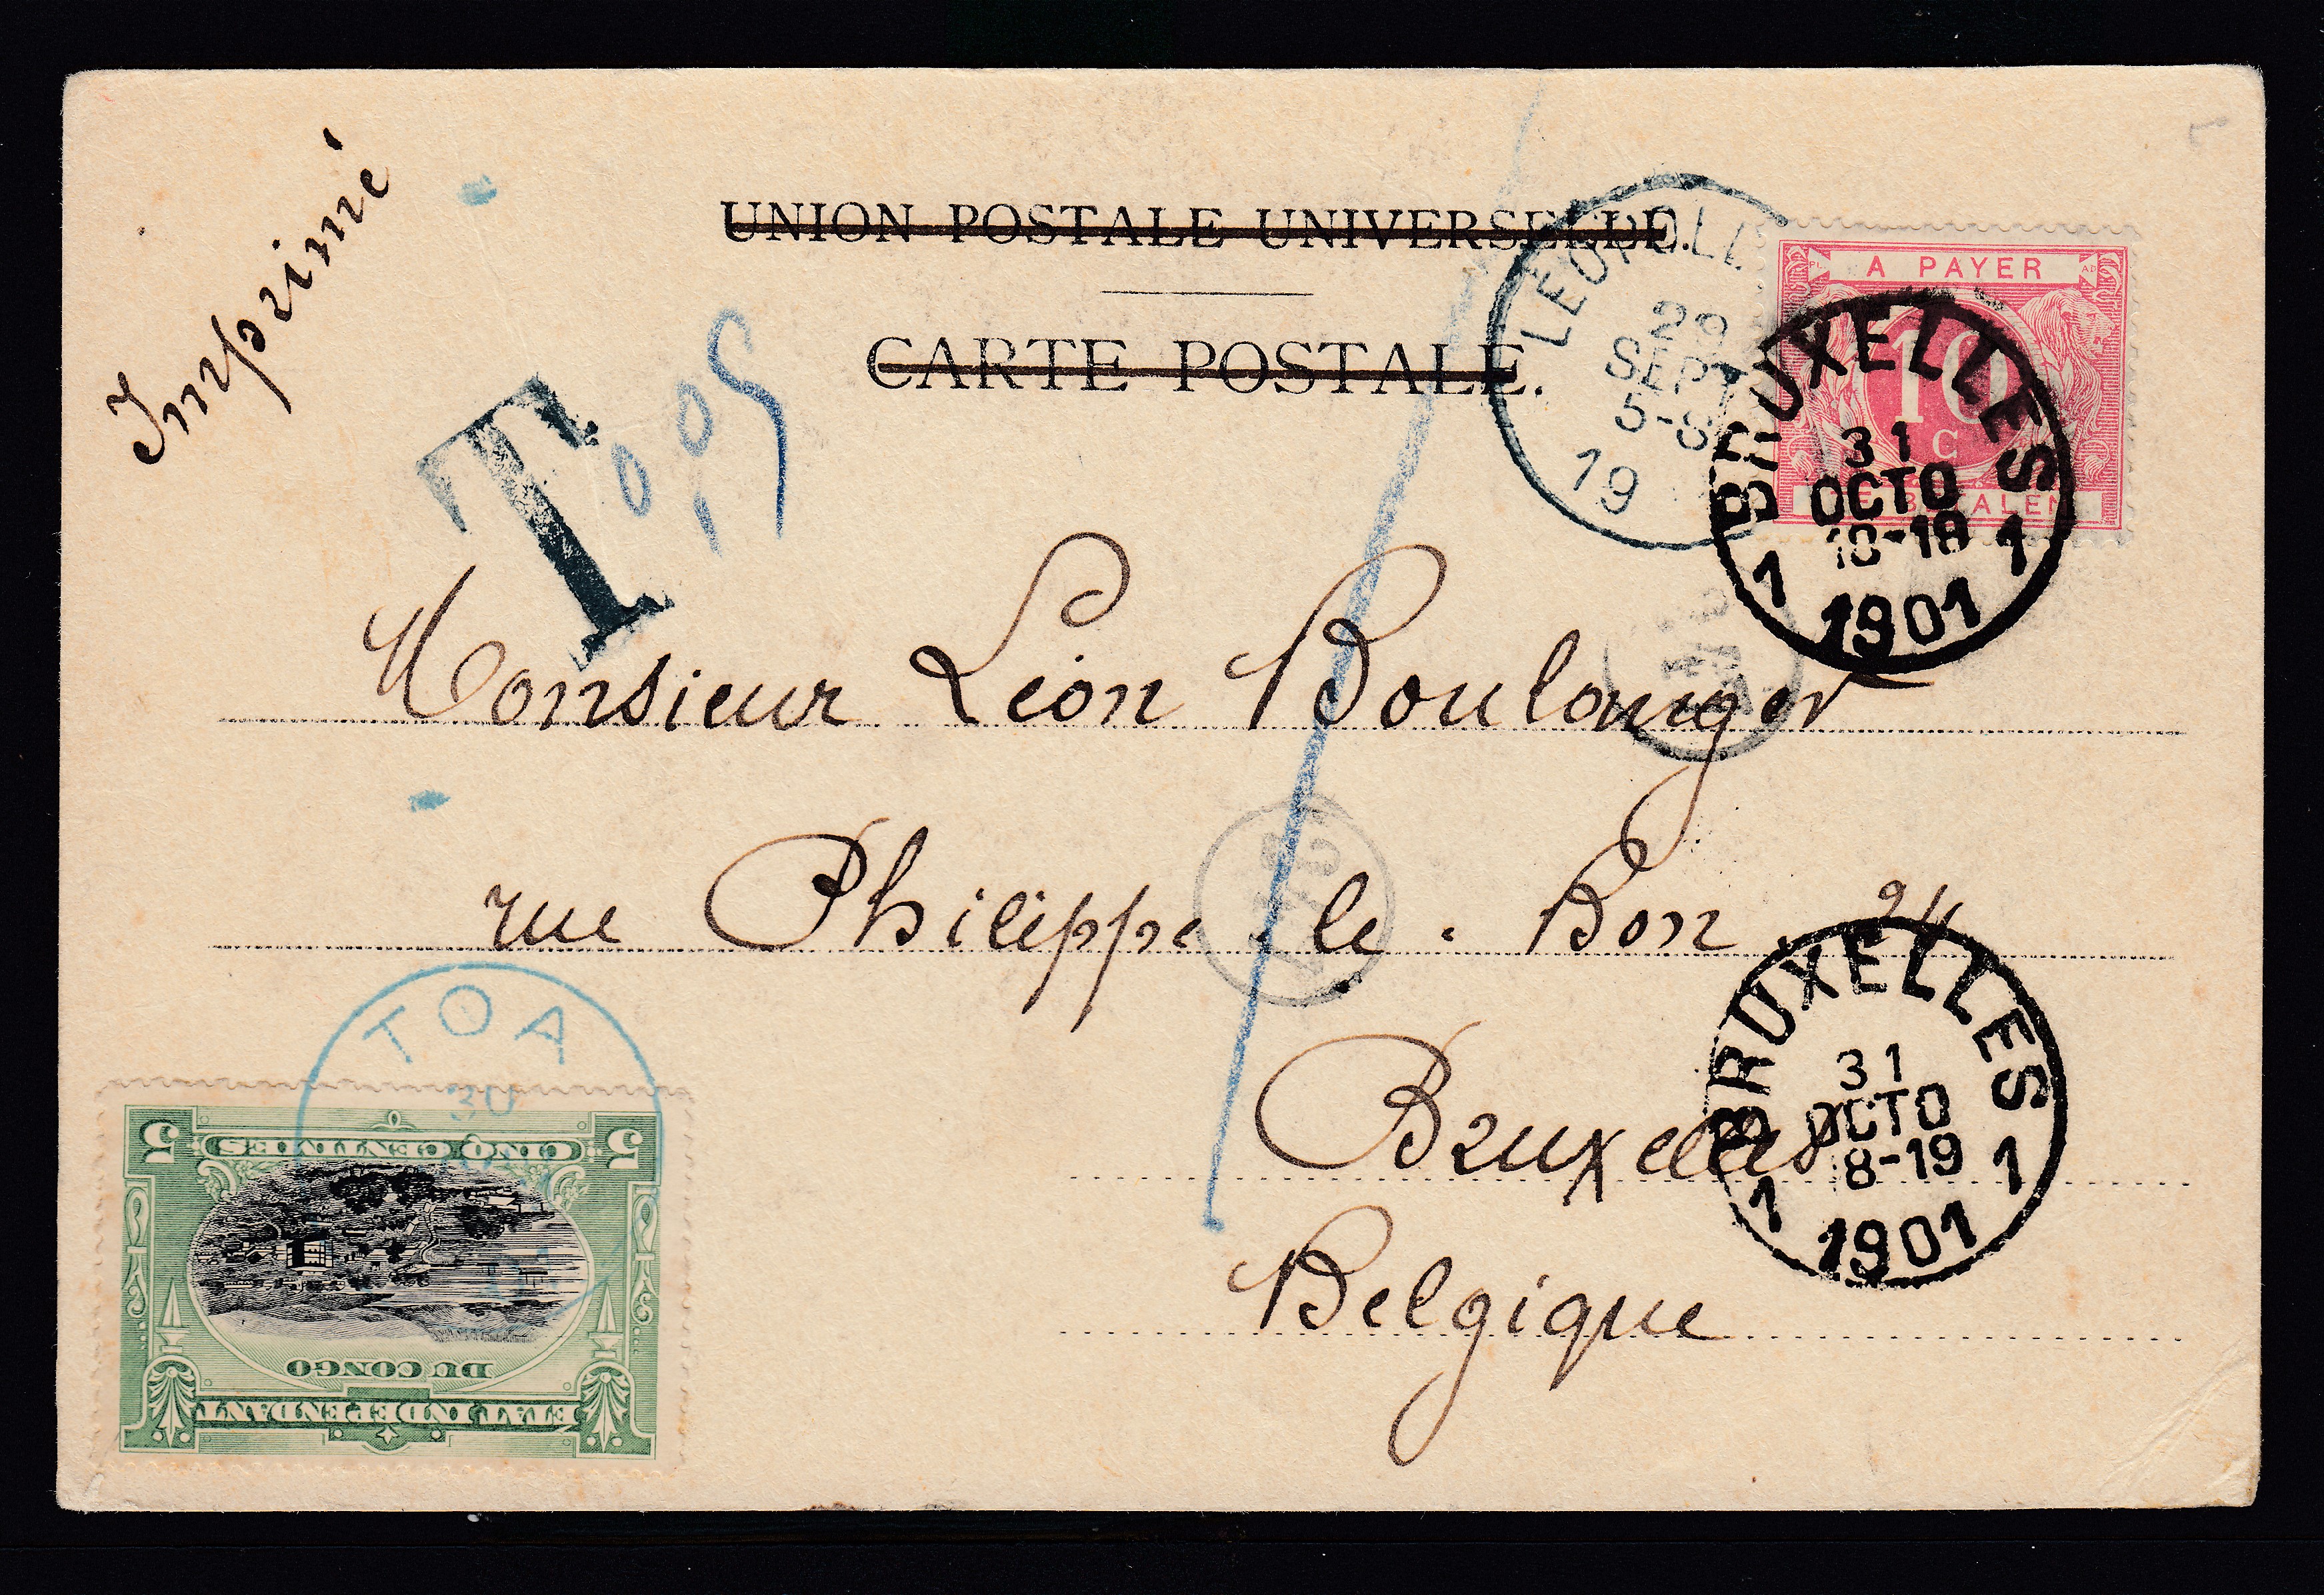 Imprimé
UNION POSTALE UNIVERSELLE.
CARTE POSTALE.
T 0,05
LEOPOLD
29
SEPT
5-8
19
A PAYER
10
C
BETALEN
BRUXELLES
31
OCTO
18-19
1 1901 1
Monsieur Léon Boulanger
rue Philippe-le-Bon. 24
Bruxelles
Belgique
BRUXELLES
31
OCTO
18-19
1 1901 1
TOA
30
5 CINQ CENTIMES 5
DU CONGO
ETAT INDÉPENDANT